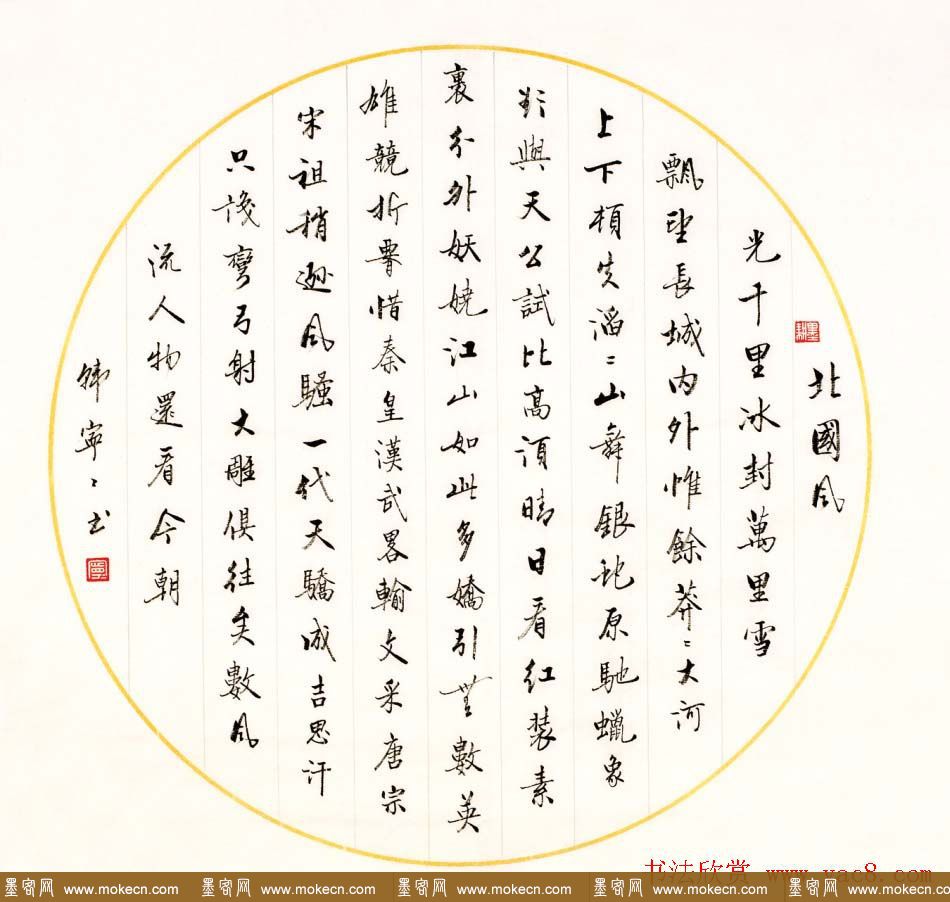 北國風
光千里冰封萬里雪
飄望長城内外惟餘莽〻大河
上下頓失滔〻山舞銀蛇原馳蠟象
欲與天公試比高須晴日看红装素
裹分外妖嬈江山如此多嬌引無數英
雄競折腰惜秦皇漢武畧輸文采唐宗
宋祖稍遜風騷一代天驕成吉思汗
只識彎弓射大雕俱往矣數風
流人物還看今朝
韩寧〻书
书法欣赏 www.yac8.com
墨客网 www.mokecn.com 墨客网 www.mokecn.com 墨客网 www.mokecn.com 墨客网 www.mokecn.com 墨客网 www.mokecn.com